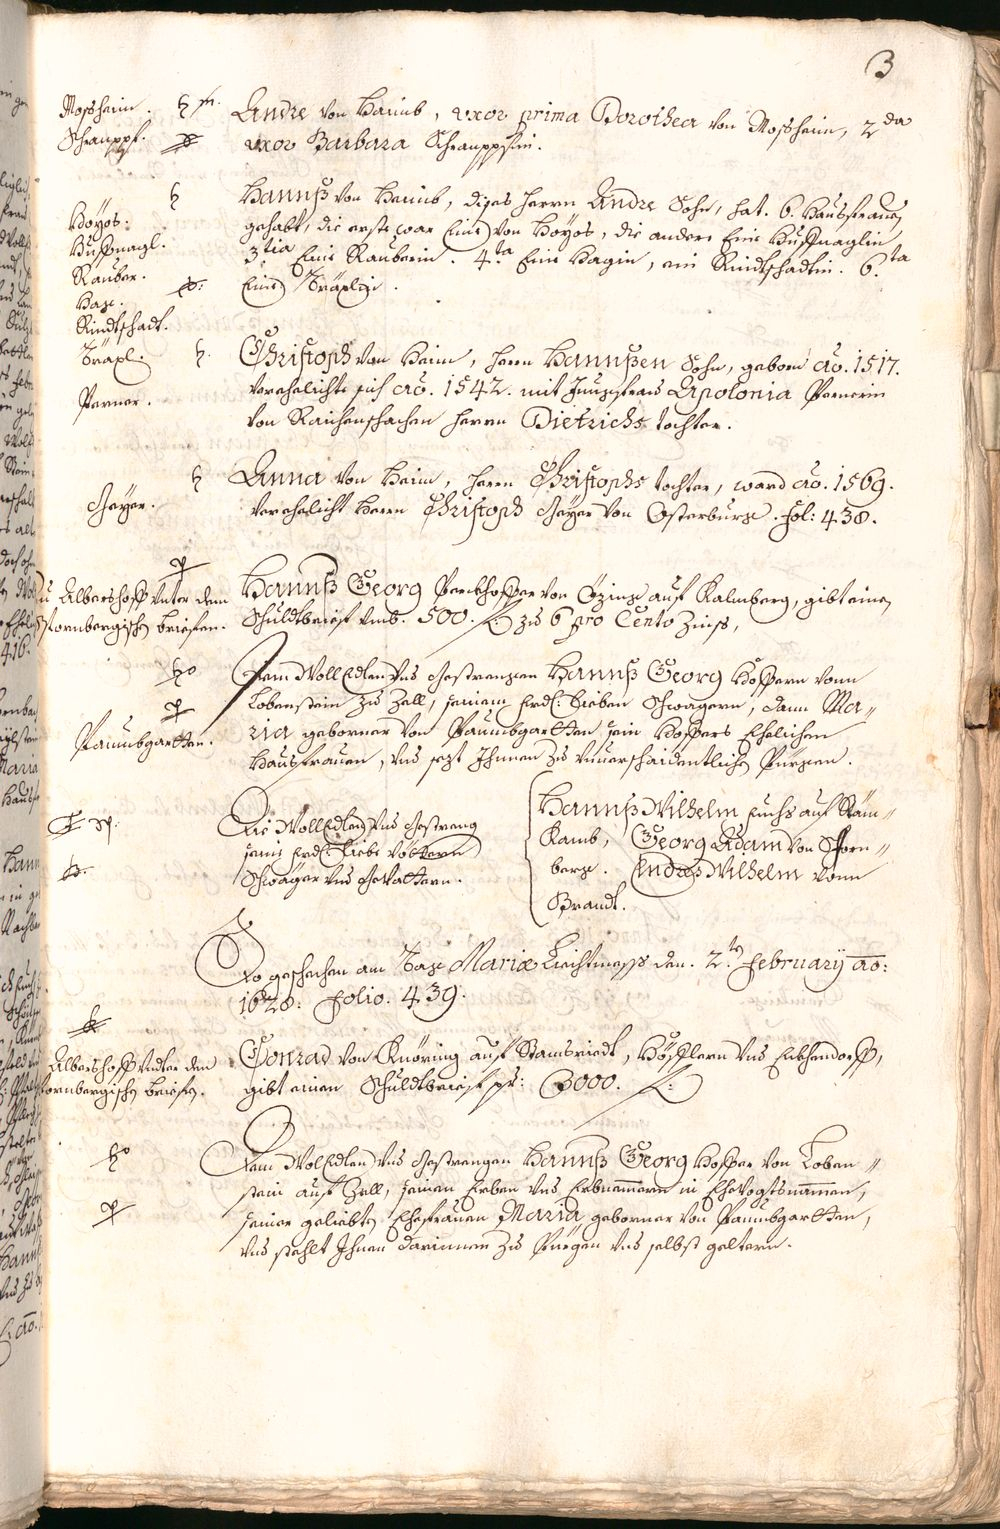 3
Mosheim. H M.
Schrampf.
Andre von Haimb, uxor prima Dorothea von Mosheim, 2da
uxor Barbara Schramppfin.
H
Hoÿos.
Hueffnagl.
Rauber.
Hag.
Rindtschadt.
Träxl.
Hannß von Haimb, dises Herrn Andre Sohn, hat. 6. Hausfrauen
gehabt, die erste war Eine von Hoÿos, die andere Eine Hueffnaglin,
3tia Eine Rauberin. 4.ta Eine Hagin, ein Rindtschadtin. 6.ta
Eine Träxlin.
H.
Perner.
Christoph von Haim, Herrn Hannßen Sohn, geborn Aõ. 1517.
verehelichte sich Aõ. 1542. mit Junckfrau Apolonia Pernerin
von Raichenschachen Herrn Dietrichs tochter.
H
Geÿer.
Anna von Haim, Herrn Christophs tochter, ward Aõ. 1569.
verehelicht Herrn Christoph Geÿer von Osterburg. Fol: 438.
P
Zu Albershoff unter denn
Stornbergischen Briefen.
Hannß Georg Perckhoffer von Ezing auf Kalmberg, gibt einen
Schuldtbrief umb. 500. f. zu 6 pro Cento Zinß,
Ho
P
Paumbgartten.
Dem WollEdlen Und Gestrengen Hannß Georg Hoffern vonn
Lobenstein zu Zell, seinem Frdl: Lieben Schwagern, dann Ma-
ria geborner von Paumbgartten sein Hoffers Ehelichen
Hausfrauen, und sezt Ihnnen zu unverschaidentlichen Pürgen.
Die WollEdlen Und Gestreng
seine Frdl: Liebe Vöttern
Schwäger und Gevattern.
Hannß Wilhelm Fuchs auf Räm-
Kamb, Georg Adam von Storn-
berg. Andreß Wilhelm vonn
Brandt.
So geschehen am Tag Mariæ Liechtmesß den. 2.ten February aõ:
1628. Folio. 439.
K
Albershoff Under den
Stornbergischen Briefen.
Conrad von Knöring auf Stamsriedt, Höflern und Lichendorff,
gibt einen Schuldtbrief pr: 3000. f.
Ho
P
Dem WolEdlen Und Gestrengen Hannß Georg Hoffer von Loben-
stein auf Zell, seinen Erben und Erbnemern in Ehevogtsnamen,
seiner geliebten Ehefrauen Maria geborner von Paumbgartten,
und stehlt Ihnen darinnen zu Pürgen und selbst geltern.